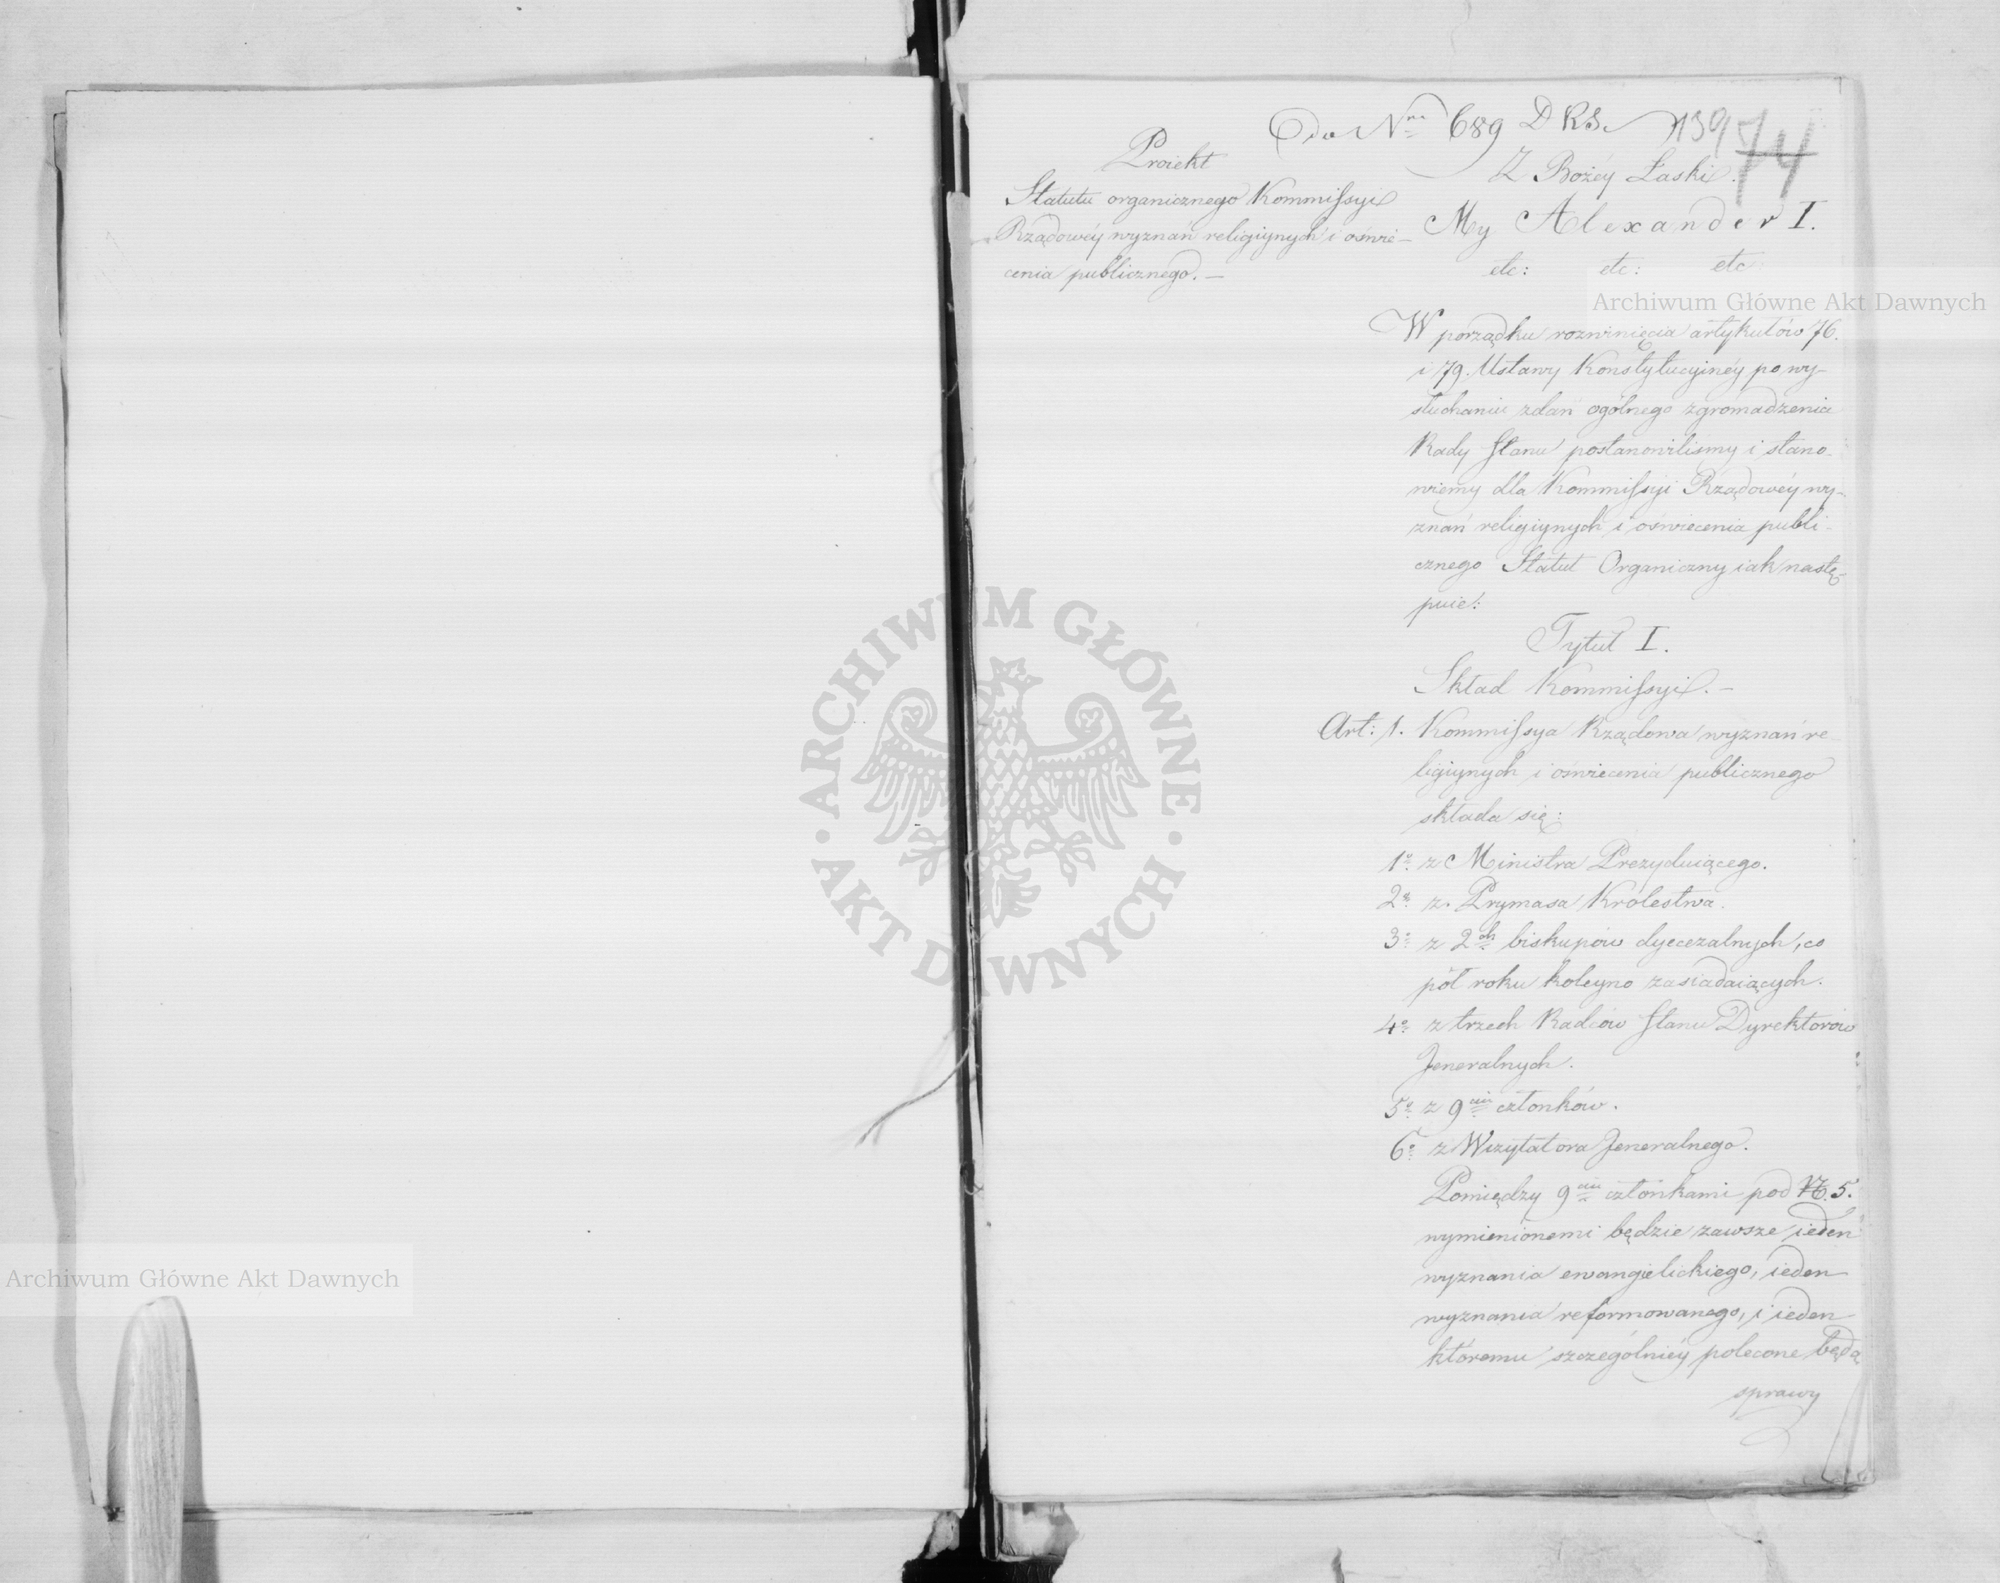 Do Nru 689 D.R.S. 139
74
Proiekt
Statutu organicznego Kommissyi
Rządowéy wyznań religiynych i oświe-
cenia publicznego. —
Z Bożéy Łaski.
My Alexander I.
etc: etc: etc:
W porządku rozwinięcia artykułów 76.
i 79. Ustawy Konstytucyinéy po wy-
słuchaniu zdań ogólnego zgromadzenia
Rady Stanu postanowiliśmy i stano-
wiemy dla Kommissyi Rządowéy wy-
znań religiynych i oświecenia publi-
cznego Statut Organiczny iak nastę-
puie:
Tytuł I.
Skład Kommissyi. —
Art: 1. Kommissya Rządowa wyznań re-
ligiynych i oświecenia publicznego
składa się:
1o z Ministra Prezyduiącego.
2o z Prymasa Królestwa.
3o z 2ch biskupów dyecezalnych, co
pół roku koleyno zasiadaiących.
4o z trzech Radców Stanu Dyrektorów
Jeneralnych.
5o z 9ciu członków.
6o z Wizytatora Jeneralnego.
Pomiędzy 9ciu członkami pod N. 5.
wymienionemi będzie zawsze ieden
wyznania ewangielickiego, ieden
wyznania reformowanego, i ieden
któremu szczególniéy polecone będą
sprawy
Archiwum Główne Akt Dawnych
Archiwum Główne Akt Dawnych
ARCHIWUM GŁÓWNE · AKT DAWNYCH ·